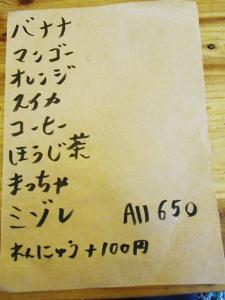 バナナ
マンゴー
オレンジ
スイカ
コーヒー
ほうじ茶
まっちゃ
ミゾレ All 650
れんにゅう +100円